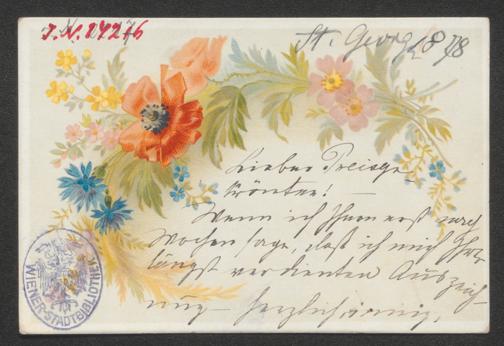 J. N. 27276
St. Georg 28/8
Lieber Preisge-
krönter! -
Wenn ich Ihnen erst nach
Wochen sage, daß ich mich Ihrer
längst verdienten Auszeich-
nung - herzlichst
WIENER-STADTBIBLIOTHEK